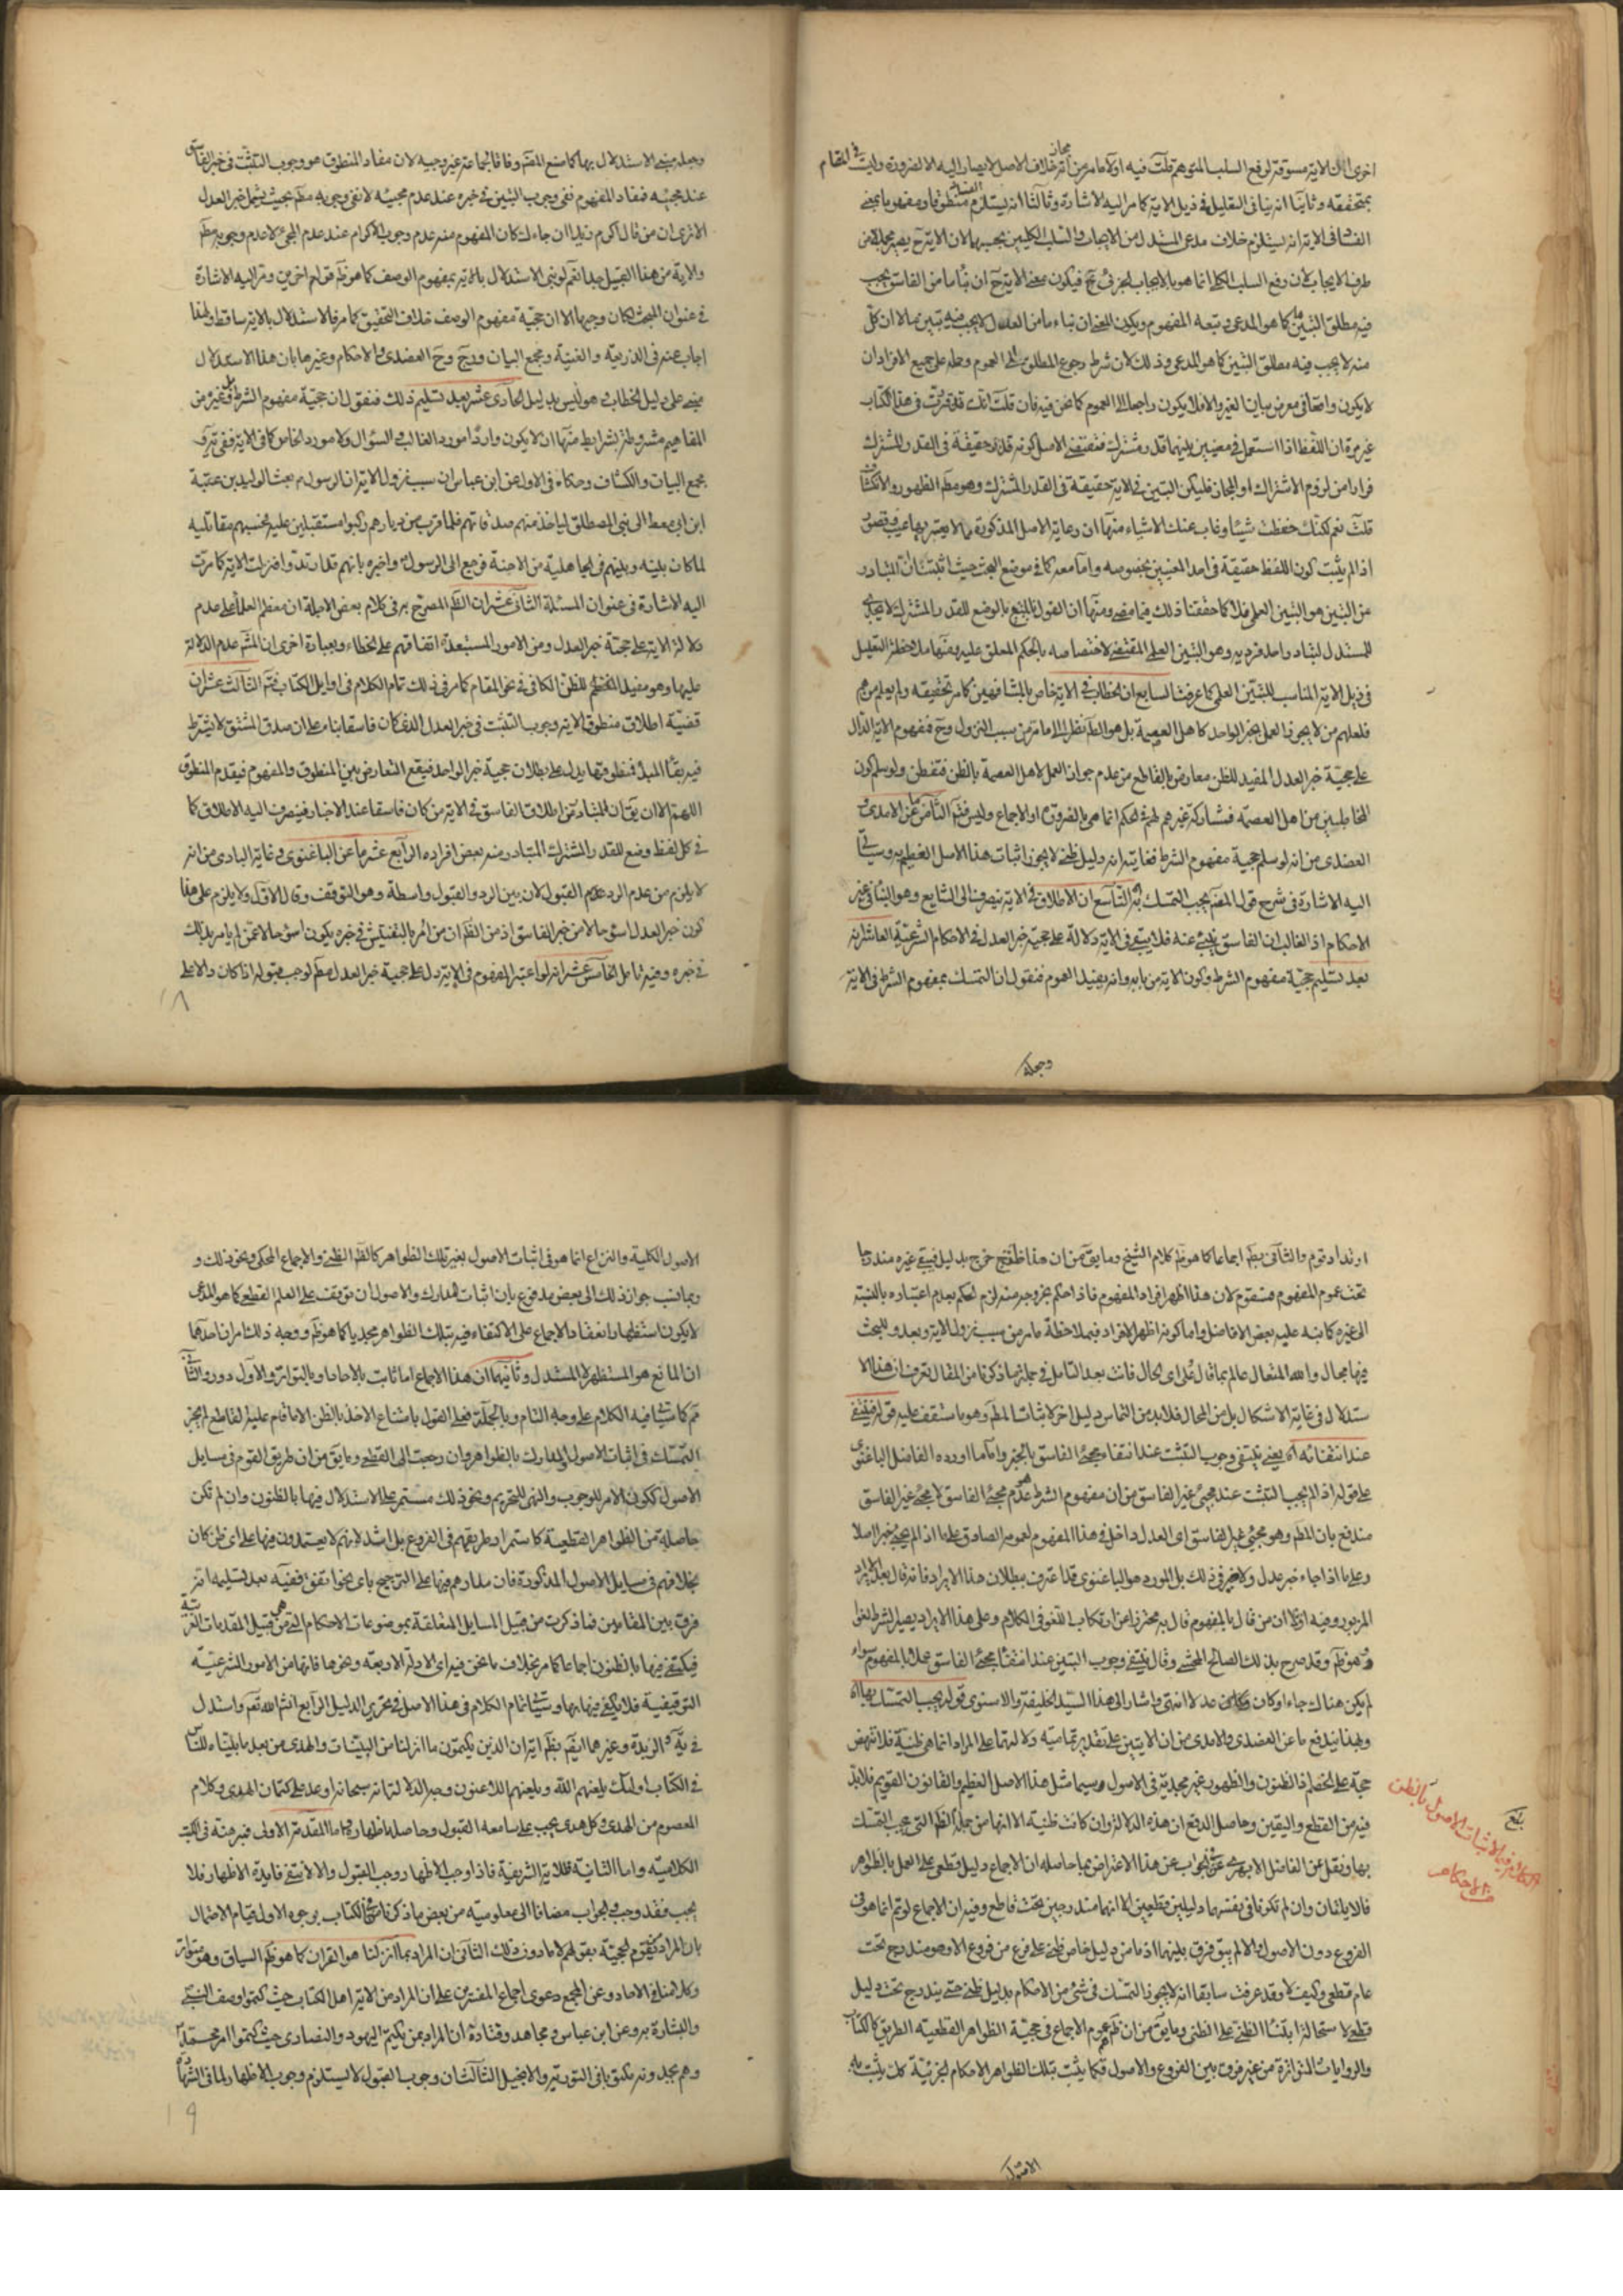 اخرى ان الاية مسوقة لرفع السلب المتوهم قلت فيه اولا ما مر من انه مجاز خلاف الاصل لا يصار اليه الا لضرورة وليت في المقام
بمتحققة وثانيا انه ينافى التعليل فى ذيل الاية كما مر اليه الاشارة وثالثا انه يستلزم منطوقا ومفهوما بمعنى
الاية انه يستلزم خلاف مدعى المستدل من الايجاب والسلب الكليين بحسبهما لان الاية ح يصير محله من
طرف الايجاب لان رفع السلب الكلى انما هو بالايجاب الجزئى ح فيكون معنى الاية ح ان نبأ ما من الفاسق يجب
فيه مطلق التبين كما هو المدعى وتبعه المفهوم ويكون المعنى ان نباء ما من العدل لا يجب فيه تبين ما لا ان كل
منه لا يجب فيه مطلق التبين كما هو المدعى وذلك لان شرط رجوع المطلق الى العموم وحمله على جميع الافراد ان
لا يكون واضعا فى معرض بيان الغير والا فلا يكون راجعا الى العموم كما نحن فيه فان قلت انك قد قررت فى هذا الكتاب
غير مرة ان اللفظ اذا استعمل فى معنيين بينهما قدر مشترك فمقتضى الاصل كونه حقيقة فى القدر المشترك
فرارا من لزوم الاشتراك او المجاز فليكن التبين فى الاية حقيقة فى القدر المشترك وهو مطلق الظهور والانكشاف
قلت نعم لكنك حفظت شيئا وغاب عنك الاشياء منها ان رعاية الاصل المذكورة مما لا يعتبر بها عيب وقصور
اذا لم يثبت كون اللفظ حقيقة فى احد المعنيين بخصوصه واما معه كما فى موضع البحث حيث اثبتنا ان المتبادر
من التبين هو التبين العلمى فلا كما حققنا ذلك فيما مضى ومنها ان القول بالوضع للقدر المشترك لا يجدى
للمستدل لتبادر واحد فرديه وهو التبين العلمى المقتضى لاختصاصه بالحكم المعلق عليه ومنها ملاحظة التعليل
فى ذيل الاية المناسب للتبين العلمى كما عرفت السابع ان الخطاب فى الاية خاص بالمشافهين كما مر تحقيقه ولم يعلم من هم
فلعلهم من لا يجوز العمل بخبر الواحد كاهل العصمة بل هو الظ نظرا الى ما مر من سبب النزول وح فمفهوم الاية الدال
على حجية خبر العدل المفيد للظن معارض بالقاطع من عدم جواز العمل لاهل العصمة بالظن فتفطن ولو سلم كون
المخاطبين من اهل العصمة فشاركة غيرهم لهم فى الحكم انما هى بالضرورة او الاجماع وليس فثم الثامن ما عن الامدى
العضدى من انه لو سلم حجية مفهوم الشرط فغايته انه دليل ظنى لا يجوز اثبات هذا الاصل العظيم به وسياتى
اليه الاشارة فى شرح قول المصنف يجب التمسك به التاسع ان الاطلاق فى الاية ينصرف الى الشايع وهو النبأ فى غير
الاحكام اذ الغالب ان الفاسق ينبئ عنه فلا يبقى فى الاية دلالة على حجية خبر العدل فى الاحكام الشرعية العاشر انه
بعد تسليم حجية مفهوم الشرط وكون الاية من بابه وانه يفيد العموم فنقول ان التمسك بمفهوم الشرط فى الاية
وجعله
وجعله مبنى الاستدلال بها كما صنع المصنف وفاقا لجماعة غير وجيه لان مفاد المنطوق هو وجوب التثبت فى خبر الفاسق
عند مجيئه فمفاد المفهوم نفى وجوب التبين فى خبره عند عدم مجيئه لا نفى وجوبه مطم بحيث يشمل خبر العدل
الا ترى ان من قال اكرم زيدا ان جاءك كان المفهوم منه عدم وجوب الاكرام عند عدم المجئ لا عدم وجوبه مطم
والاية من هذا القبيل جدا نعم لو بنى الاستدلال بالاية بمفهوم الوصف كما هو ظم قوم اخرين ومر اليه الاشارة
فى عنوان المبحث لكان وجيها الا ان حجية مفهوم الوصف خلاف التحقيق كما مر فالاستدلال بالاية ساقط ولهذا
اجاب عنه فى الذريعة والغنية ومجمع البيان و العضدى والاحكام وغيرها بان هذا الاستدلال
مبنى على دليل الخطاب وهو ليس بدليل الحادى عشر بعد تسليم ذلك فنقول ان حجية مفهوم الشرط بل وغيره من
المفاهيم مشروطة بشرايط منها ان لا يكون واردا مورد الغالب والسؤال ولا مورد الخاص كما فى الاية ففى
مجمع البيان والكشاف وحكاه فى الاول عن ابن عباس ان سبب نزول الاية ان الرسول ص بعث الوليد بن عقبة
ابن ابى معط الى بنى المصطلق لياخذ منهم صدقاتهم فلما قرب من ديارهم ركبوا مستقبلين عليه فحسبهم مقاتليه
لما كان بينه وبينهم فى الجاهلية من الاحنة فرجع الى الرسول ص واخبره بانهم قد ارتدوا فنزلت الاية كما مرت
اليه الاشارة فى عنوان المسئلة الثانى عشر ان الظم المصرح به فى كلام بعض الاجلة ان معظم العلماء على عدم
دلالة الاية على حجية خبر العدل ومن الامور المستبعدة اتفاقهم على الخطاء وبعبارة اخرى ان المشم عدم الدلالة
عليها وهو مفيد للظن الكافى فى نحو المقام كما مر فى ذلك تمام الكلام فى اوايل الكتاب فثم الثالث عشر ان
قضية اطلاق منطوق الاية وجوب التثبت فى خبر العدل الذى كان فاسقا بناء على ان صدق المشتق لا يشترط
فيه بقاء المبدء فمنطوقها يدل على بطلان حجية خبر الواحد فيقع التعارض بين المنطوق والمفهوم فيقدم المنطوق
اللهم الا ان يق ان المتبادر من اطلاق الفاسق فى الاية من كان فاسقا عند الاخبار فينصرف اليه الاطلاق كما
فى كل لفظ وضع للقدر المشترك المتبادر منه بعض افراده الرابع عشر ما عن الباغنوى وغاية البادى من انه
لا يلزم من عدم الرد عدم القبول لان بين الرد والقبول واسطة وهو التوقف وقال الاول ولا يلزم على هذا
كون خبر العدل اسوء حالا من خبر الفاسق اذ من الظم ان من امر بالتفتيش فى خبره يكون اسوء حالا عمن لم يامر بذلك
فى خبره وفيه تامل الخامس عشر انه لو اعتبر المفهوم فى الاية دل على حجية خبر العدل مطم لوجب قبوله اذا كان والا على
١٨
ارتداد قوم والثانى بطم اجماعا كما هو ظم كلام الشيخ وما يق من ان هذا خرج بدليل فيبقى غيره مندرجا
تحت عموم المفهوم فسقوم لان هذا اظهر افراد المفهوم فاذا حكم بخروجه منه لزم الحكم بعدم اعتباره بالنسبة
الى غيره كما نبه عليه بعض الافاضل واما كونه اظهر الافراد فبملاحظة ما مر من سبب نزول الاية وبعد وللبحث
فيها مجال والله المتعال عالم بما قال على اى حال فانت بعد التامل فى جملة ما ذكرنا من المقال تعرف ان هذا الا
ستدلال فى غاية الاشكال بل من المحال فلا بد من التماس دليل اخر لاثبات المطم وهو ما ستقف عليه قوله فينتفى
عند انتفائه اه يعنى ينتفى وجوب التثبت عند انتفاء مجئ الفاسق بالخبر واما ما اورده الفاضل الباغنوى
على قوله اذا لم يجب التثبت عند مجئ غير الفاسق من ان مفهوم الشرط هو عدم مجئ الفاسق لا مجئ غير الفاسق
مندفع بان المطم وهو مجئ غير الفاسق اى العدل داخل فى هذا المفهوم لعمومه الصادق على ما اذا لم يجئ خبر اصلا
وعلى ما اذا جاء خبر عدل ولا ضير فى ذلك بل المورد هو الباغنوى قد اعترف ببطلان هذا الايراد فانه قال بعد الايراد
المزبور وفيه اولا ان من قال بالمفهوم قال به محترزا من ارتكاب اللغو فى الكلام وعلى هذا الايراد يصير الشرط لغوا
وهو ظم وقد صرح بذلك الصالح المحشى وقال ينتفى وجوب التبين عند انتفاء مجئ الفاسق عملا بالمفهوم سواء
لم يكن هناك جاء او كان وكان عدلا انتهى واشار الى هذا السيد الخليفة والاسنوى قوله يجب التمسك بها اه
وبهذا يندفع ما عن العضدى والامدى من ان الايتين على تقدير تماميه دلالتهما على المراد انما هى ظنية فلا تنهض
حجة على الخصم اذ الظنون والظهور غير مجدية فى الاصول وسيما مثل هذا الاصل العظيم والقانون القويم فلا بد
فيه من القطع واليقين وحاصل الدفع ان هذه الدلالة وان كانت ظنية الا انها من جملة الظم التى يجب التمسك
بها ونقل عن الفاضل الابهرى الجواب عن هذا الاعتراض بما حاصله ان الاجماع دليل قطعى على العمل بالظواهر
فالايتان وان لم تكونا فى نفسهما دليلين قطعيين الا انهما مندرجين تحت قاطع وفيه ان الاجماع لو تم انما هو فى
الفروع دون الاصول والا لم يبق فرق بينهما اذ ما من دليل خاص ظنى على فرع من فروع الا وهو مندرج تحت
عام قطعى وكيف لا وقد عرفت سابقا انه لا يجوز التمسك فى شئ من الاحكام بدليل ظنى حتى يندرج تحت دليل
قطعى لاستحالة ابتناء الظنى على الظنى وما يق من ان ظم عموم الاجماع فى حجية الظواهر القطعيه الطريق كالكتاب
والروايات المتواترة من غير فرق بين الفروع والاصول فكما يثبت بتلك الظواهر الاحكام الجزئية كك يثبت به
الاصول
بلغ
الكلام فى الاثبات الاصول بالظن
من الاحكام
الاصول الكلية والنزاع انما هو فى اثبات الاصول بغير تلك الظواهر كالظم الظنى والاجماع المحكى ونحو ذلك و
ربما نسب جواز ذلك الى بعض مدفوع بان اثبات المدارك والاصول ان توقف على العلم القطعى كما هو المدعى
لا يكون استظهار انعقاد الاجماع على الاكتفاء فيه بتلك الظواهر مجديا كما هو ظم ووجه ذلك امران احدهما
ان المانع هو المستظهر لا المستدل وثانيهما ان هذا الاجماع اما ثابت بالاحاد او بالتواتر والاول دور والثانى
مم كما سيتاتى فيه الكلام على وجه التام وبالجملة فعلى القول بامتناع الاخذ بالظن الا ما قام عليه القاطع لم يجز
التمسك فى اثبات الاصول والمدارك بالظواهر وان رجعت الى القطعى وما يق من ان طريق القوم فى مسايل
الاصول ككون الامر للوجوب والنهى للتحريم ونحو ذلك مستمر على الاستدلال فيها بالظنون وان لم تكن
حاصلة من الظواهر القطعية كاستمرار طريقهم فى الفروع بل اشد لانهم لا يعتمدون فيها على اى ظن كان
بخلافهم فى مسايل الاصول المذكورة فان مدارهم فيها على الترجيح باى نحو اتفق ففيه بعد تسليمه انه
فرق بين المقامين فما ذكرت من قبيل المسايل المتعلقة بموضوعات الاحكام التى هى من قبيل المقدمات
فيكتفى فيها بالظنون اجماعا كما مر بخلاف ما نحن فيه اى الادلة الاربعه ونحوها فانها من الامور الشرعيه
التوقيفية فلا يكتفى فيها بها وسياتى تمام الكلام فى هذا الاصل فى تحرير الدليل الرابع انشاء الله تعم واستدل
فى يه و الزبدة وغيرهما ايضم بظم اية ان الذين يكتمون ما انزلنا من البينات والهدى من بعد ما بيناه للناس
فى الكتاب اولئك يلعنهم الله ويلعنهم اللاعنون وجه الدلالة انه سبحانه اوعد على كتمان الهدى وكلام
المعصوم من الهدى وكل هدى يجب على سامعه القبول وحاصله اظهاره اما المقدمة الاولى فمبرهنة فى الكتب
الكلاميه واما الثانية فللاية الشريفة فاذا وجب الاظهار وجب القبول والا لانتفى فايدة الاظهار فلا
يجب فقد وجب والجواب مضافا الى معلوميه من بعض ما ذكرنا فى الكتاب بوجوه الاول قيام الاحتمال
بان المراد تقوم الحجية بقولهم لا ما دون ذلك الثانى ان المراد بما انزلنا هو القران كما هو ظم السياق وهو متواتر
وكلامنا فى الاحاد وعن المجمع دعوى اجماع المفسرين على ان المراد من الاية اهل الكتاب حيث كتموا وصف النبى
والبشارة به وعن ابن عباس ومجاهد وقتادة ان المراد ممن يكتم اليهود والنصارى حيث كتموا امر محمد ص
وهم يجدونه مكتوبا فى التورية والانجيل الثالث ان وجوب القبول لا يستلزم وجوب الاظهار لما فى الشهادة
١٩